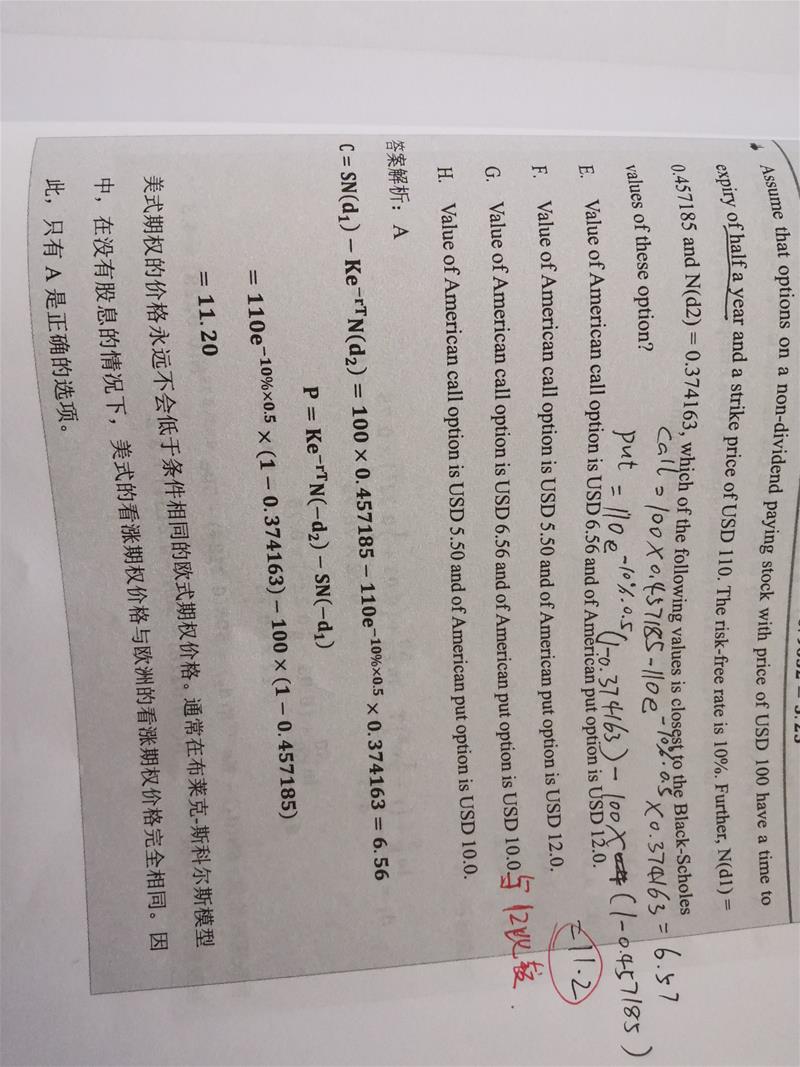 Assume that options on a non-dividend paying stock with price of USD 100 have a time to
expiry of half a year and a strike price of USD 110. The risk-free rate is 10%. Further, N(d1) =
0.457185 and N(d2) = 0.374163, which of the following values is closest to the Black-Scholes
values of these option?
call = 100×0.457185-110e^-10%·0.5 ×0.374163 = 6.57
put = 110e^-10%·0.5 (1-0.374163) - 100× (1-0.457185)
=11.2
E. Value of American call option is USD 6.56 and of American put option is USD 12.0.
F. Value of American call option is USD 5.50 and of American put option is USD 12.0.
G. Value of American call option is USD 6.56 and of American put option is USD 10.0.
与12比较.
H. Value of American call option is USD 5.50 and of American put option is USD 10.0.
答案解析： A
C = SN(d₁) − Ke^−rT N(d₂) = 100 × 0.457185 − 110e^−10%×0.5 × 0.374163 = 6.56
P = Ke^−rT N(−d₂) − SN(−d₁)
= 110e^−10%×0.5 × (1 − 0.374163) − 100 × (1 − 0.457185)
= 11.20
美式期权的价格永远不会低于条件相同的欧式期权价格。通常在布莱克-斯科尔斯模型
中，在没有股息的情况下，美式的看涨期权价格与欧洲的看涨期权价格完全相同。因
此，只有 A 是正确的选项。